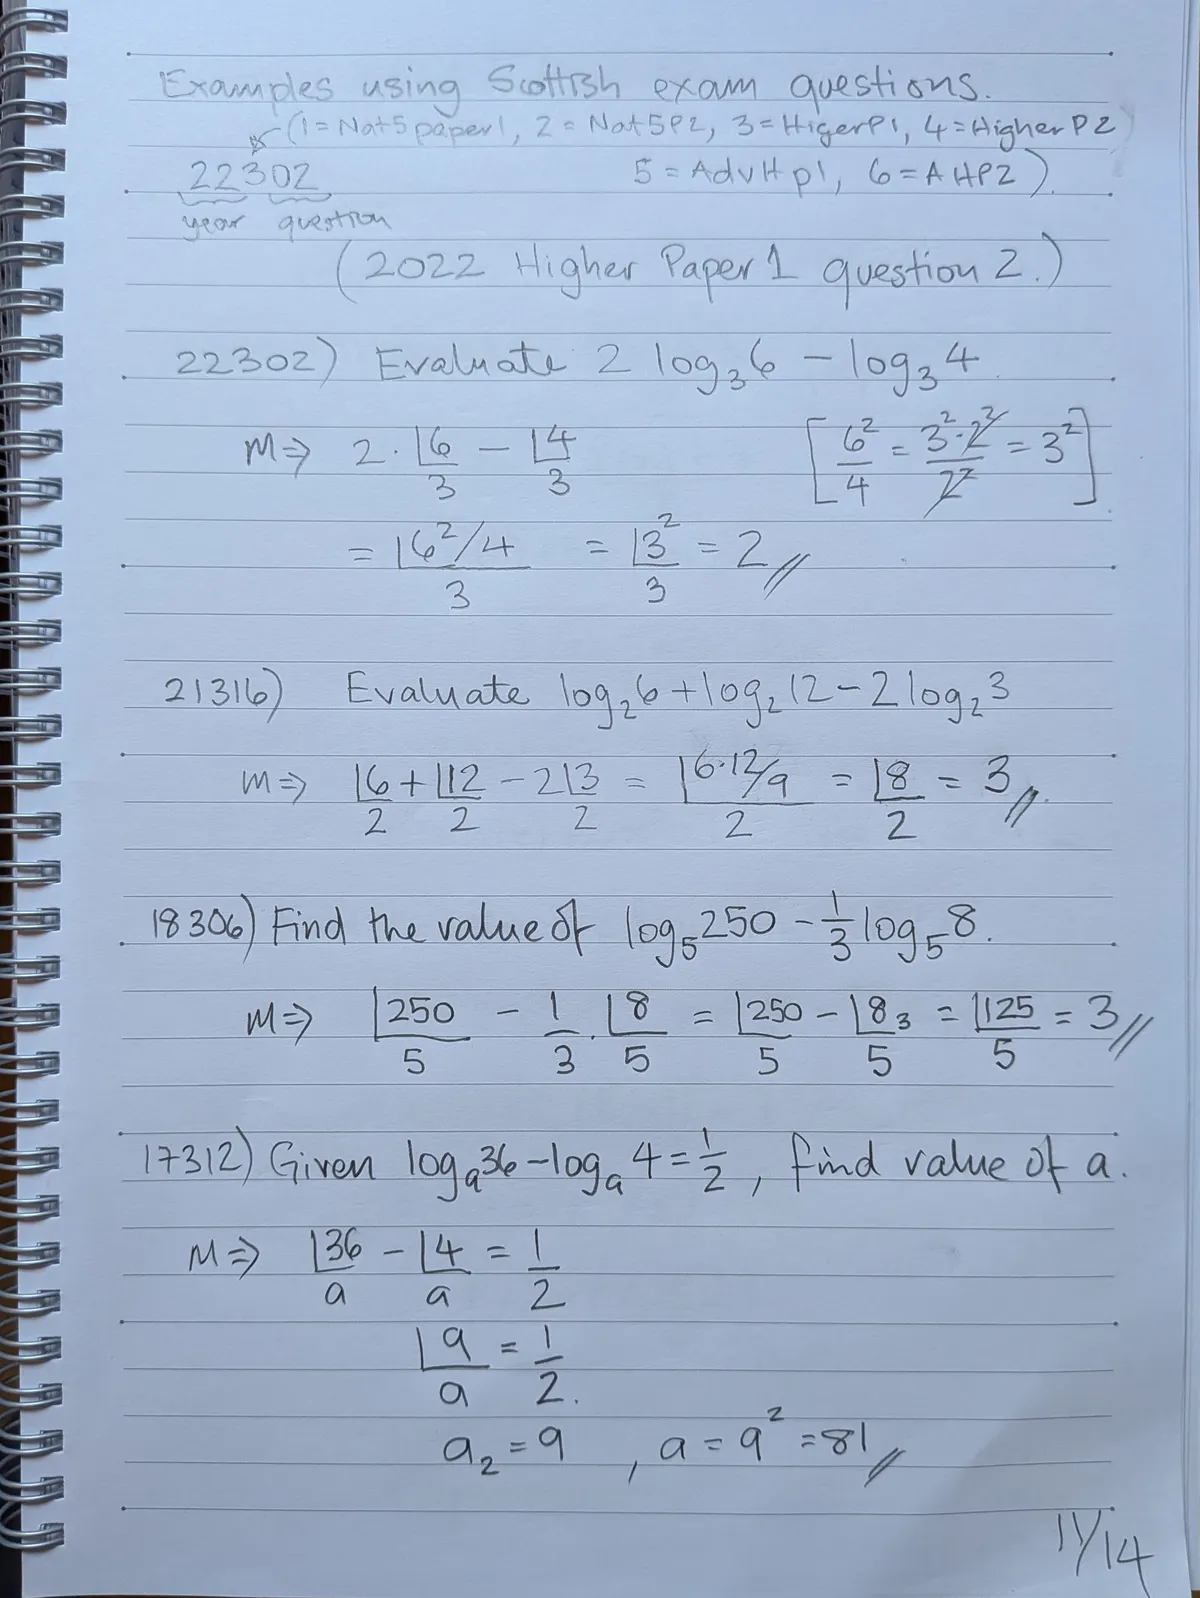 Examples using Scottish exam questions.
(1 = Nat5 paper 1, 2 = Nat5P2, 3 = HigerP1, 4 = Higher P2
22302 5 = AdvH p1, 6 = AHP2).
year question
(2022 Higher Paper 1 question 2.)
22302) Evaluate 2 log₃6 − log₃4.
M⇒ 2 · ⌊6/3 − ⌊4/3 [6²/4 = 3²·2²/2² = 3²]
= ⌊6²/4 / 3 = ⌊3²/3 = 2 //
21316) Evaluate log₂6 + log₂12 − 2 log₂3
M⇒ ⌊6/2 + ⌊12/2 − 2⌊3/2 = ⌊6·12/9 / 2 = ⌊8/2 = 3 //
18306) Find the value of log₅250 − 1/3 log₅8.
M⇒ ⌊250/5 − 1/3 · ⌊8/5 = ⌊250/5 − ⌊8₃/5 = ⌊125/5 = 3 //
17312) Given logₐ36 − logₐ4 = 1/2, find value of a.
M⇒ ⌊36/a − ⌊4/a = 1/2
⌊9/a = 1/2.
a₂ = 9 , a = 9² = 81 //
11/14